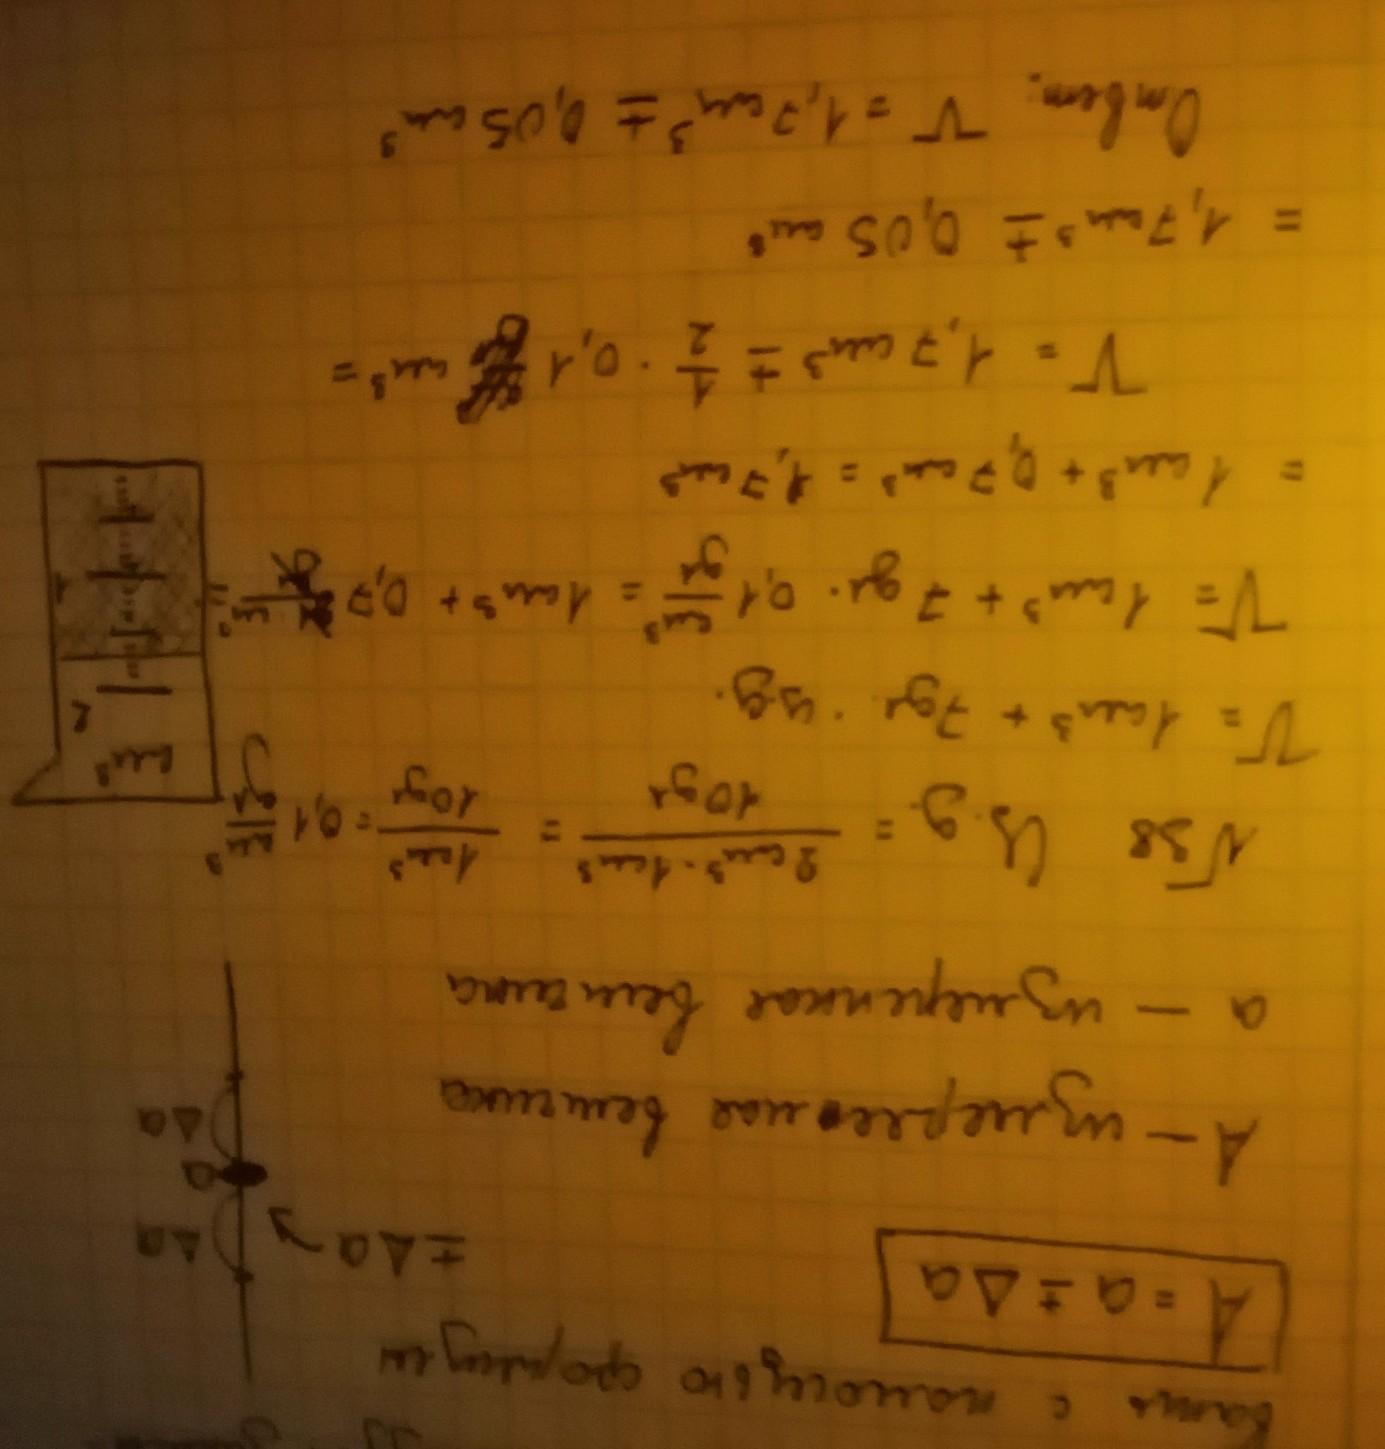 вать с помощью формулы
A = a ± Δa
± Δa
Δa
a
Δa
A — измеренная величина
a — измеренная величина
№38 Ц.д. = 2см³ - 1см³ / 10дел = 1см³ / 10дел = 0,1 см³/дел
V = 1см³ + 7дел · ц.д.
V = 1см³ + 7дел · 0,1 см³/дел = 1см³ + 0,7 см³ =
= 1см³ + 0,7см³ = 1,7см³
V = 1,7см³ ± 1/2 · 0,1 см³ =
= 1,7см³ ± 0,05 см³
Ответ: V = 1,7см³ ± 0,05см³
см³
2
1